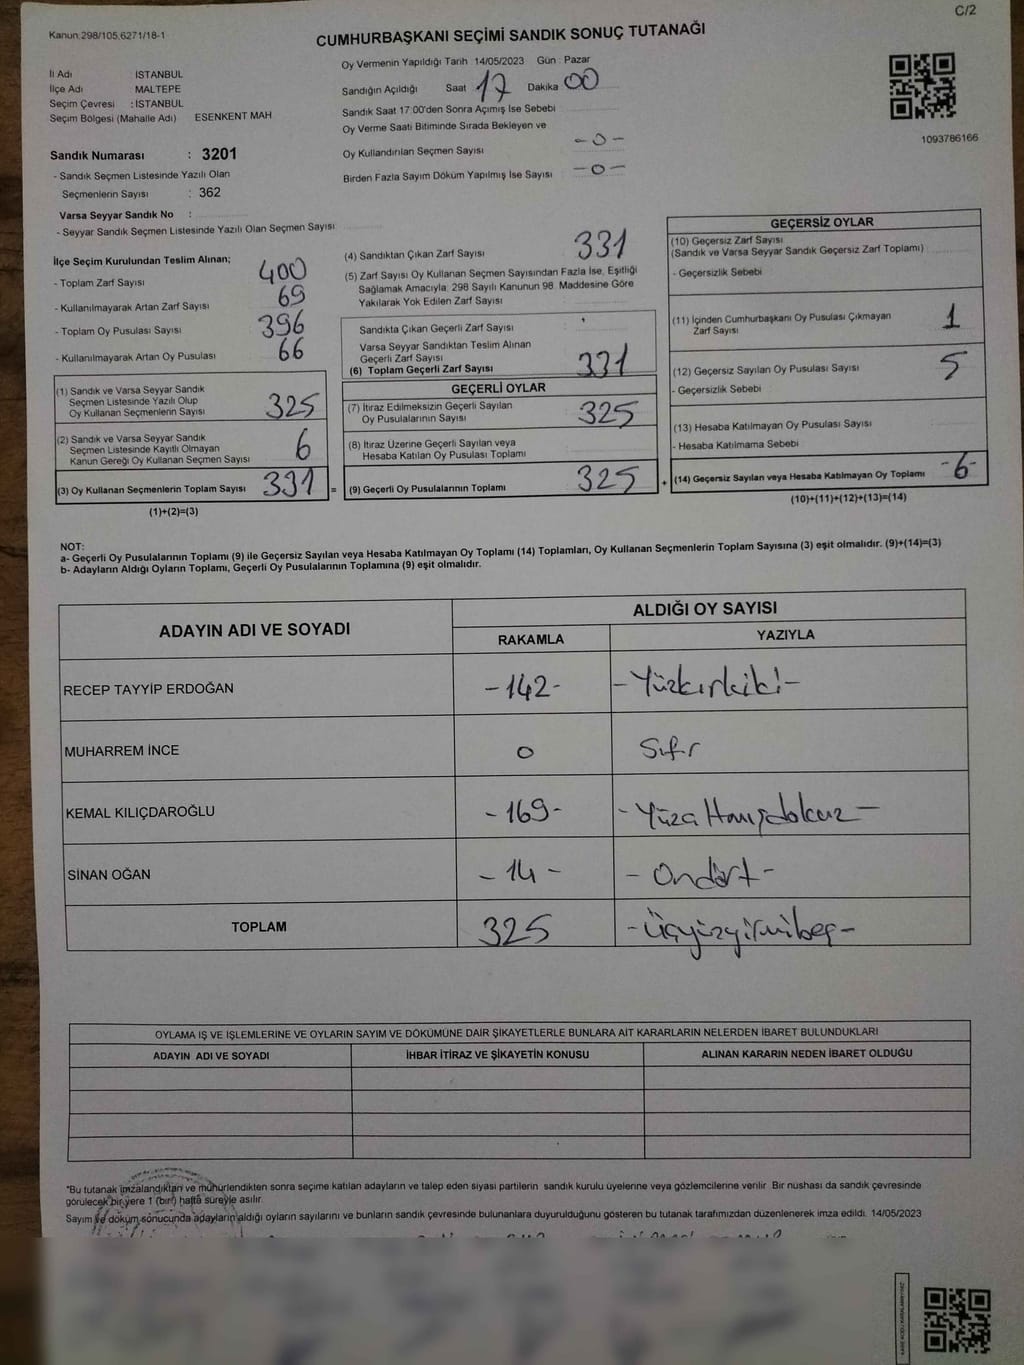 C/2
Kanun.298/105,6271/18-1
CUMHURBAŞKANI SEÇİMİ SANDIK SONUÇ TUTANAĞI
İl Adı : İSTANBUL
İlçe Adı MALTEPE
Seçim Çevresi : İSTANBUL
Seçim Bölgesi (Mahalle Adı) ESENKENT MAH
Sandık Numarası : 3201
- Sandık Seçmen Listesinde Yazılı Olan
Seçmenlerin Sayısı : 362
Varsa Seyyar Sandık No :
- Seyyar Sandık Seçmen Listesinde Yazılı Olan Seçmen Sayısı:
Oy Vermenin Yapıldığı Tarih : 14/05/2023 Gün : Pazar
Sandığın Açıldığı Saat 17 Dakika 00
Sandık Saat 17:00'den Sonra Açımış İse Sebebi
Oy Verme Saati Bitiminde Sırada Bekleyen ve
Oy Kullandırılan Seçmen Sayısı - 0 -
Birden Fazla Sayım Döküm Yapılmış İse Sayısı - 0 -
1093786166
İlçe Seçim Kurulundan Teslim Alınan;
- Toplam Zarf Sayısı 400
- Kullanılmayarak Artan Zarf Sayısı 69
- Toplam Oy Pusulası Sayısı 396
- Kullanılmayarak Artan Oy Pusulası 66
(1) Sandık ve Varsa Seyyar Sandık
Seçmen Listesinde Yazılı Olup
Oy Kullanan Seçmenlerin Sayısı 325
(2) Sandık ve Varsa Seyyar Sandık
Seçmen Listesinde Kayıtlı Olmayan
Kanun Gereği Oy Kullanan Seçmen Sayısı 6
(3) Oy Kullanan Seçmenlerin Toplam Sayısı 331 =
(1)+(2)=(3)
(4) Sandıktan Çıkan Zarf Sayısı 331
(5) Zarf Sayısı Oy Kullanan Seçmen Sayısından Fazla İse, Eşitliği
Sağlamak Amacıyla; 298 Sayılı Kanunun 98. Maddesine Göre
Yakılarak Yok Edilen Zarf Sayısı
Sandıkta Çıkan Geçerli Zarf Sayısı
Varsa Seyyar Sandıktan Teslim Alınan
Geçerli Zarf Sayısı
(6) Toplam Geçerli Zarf Sayısı 331
GEÇERLİ OYLAR
(7) İtiraz Edilmeksizin Geçerli Sayılan
Oy Pusulalarının Sayısı 325
(8) İtiraz Üzerine Geçerli Sayılan veya
Hesaba Katılan Oy Pusulası Toplamı
(9) Geçerli Oy Pusulalarının Toplamı 325 +
GEÇERSİZ OYLAR
(10) Geçersiz Zarf Sayısı
(Sandık ve Varsa Seyyar Sandık Geçersiz Zarf Toplamı)
- Geçersizlik Sebebi
(11) İçinden Cumhurbaşkanı Oy Pusulası Çıkmayan
Zarf Sayısı 1
(12) Geçersiz Sayılan Oy Pusulası Sayısı 5
- Geçersizlik Sebebi
(13) Hesaba Katılmayan Oy Pusulası Sayısı
- Hesaba Katılmama Sebebi
(14) Geçersiz Sayılan veya Hesaba Katılmayan Oy Toplamı -6-
(10)+(11)+(12)+(13)=(14)
NOT:
a- Geçerli Oy Pusulalarının Toplamı (9) ile Geçersiz Sayılan veya Hesaba Katılmayan Oy Toplamı (14) Toplamları, Oy Kullanan Seçmenlerin Toplam Sayısına (3) eşit olmalıdır. (9)+(14)=(3)
b- Adayların Aldığı Oyların Toplamı, Geçerli Oy Pusulalarının Toplamına (9) eşit olmalıdır.
ADAYIN ADI VE SOYADI ALDIĞI OY SAYISI
RAKAMLA YAZIYLA
RECEP TAYYİP ERDOĞAN -142- -Yüzkırkiki-
MUHARREM İNCE 0 Sıfır
KEMAL KILIÇDAROĞLU -169- -YüzaltmışDokuz-
SİNAN OĞAN -14- -Ondört-
TOPLAM 325 -Üçyüzyirmibeş-
OYLAMA İŞ VE İŞLEMLERİNE VE OYLARIN SAYIM VE DÖKÜMÜNE DAİR ŞİKAYETLERLE BUNLARA AİT KARARLARIN NELERDEN İBARET BULUNDUKLARI
ADAYIN ADI VE SOYADI İHBAR İTİRAZ VE ŞİKAYETİN KONUSU ALINAN KARARIN NEDEN İBARET OLDUĞU
*Bu tutanak imzalandıktan ve mühürlendikten sonra seçime katılan adayların ve talep eden siyasi partilerin sandık kurulu üyelerine veya gözlemcilerine verilir. Bir nüshası da sandık çevresinde
görülecek bir yere 1 (bir) hafta süreyle asılır.
Sayım ve döküm sonucunda adayların aldığı oyların sayılarını ve bunların sandık çevresinde bulunanlara duyurulduğunu gösteren bu tutanak tarafımızdan düzenlenerek imza edildi. 14/05/2023